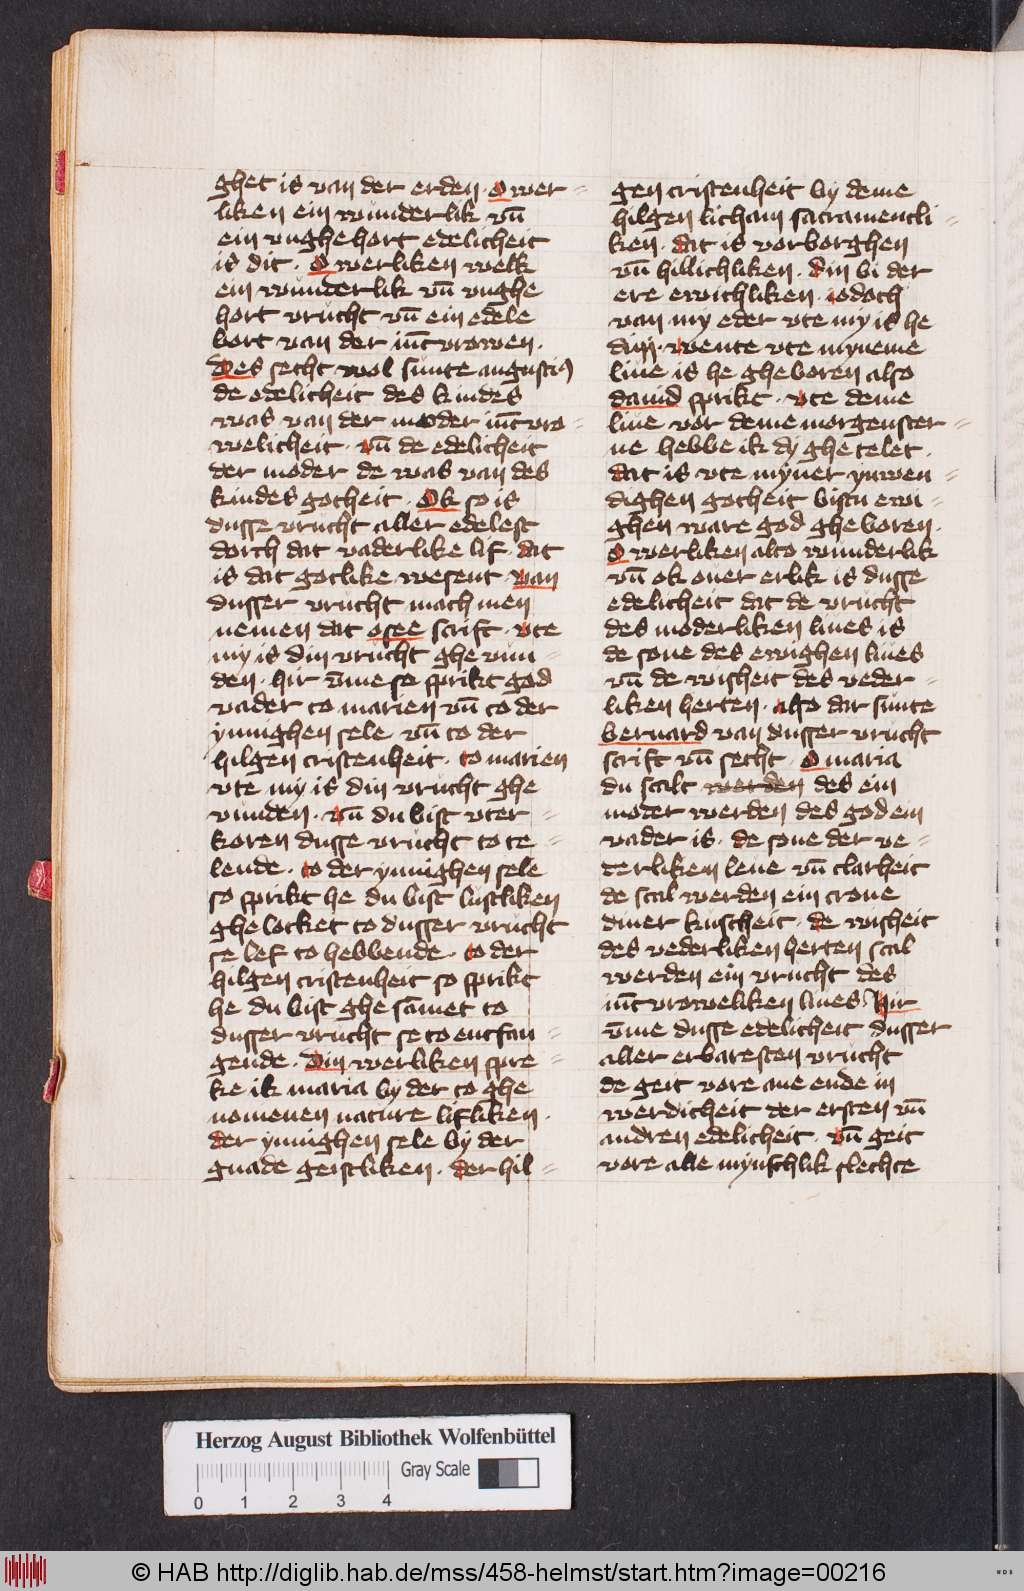 ghet is van der erden · O wer=
liken ein wunderlik vn̄
ein vnghehort edelicheit
is dit · O werliken welk
ein wunderlik vn̄ vnghe
hort vrucht vn̄ ein edele
bort van der iūcvrowen ·
Des secht wol sunte augustiꝰ
de edelicheit des kindes
was van der moder iūcvro=
welicheit · vn̄ de edelicheit
der moder de was van des
kindes gotheit · Ok so is
dusse vrucht aller edelest
dorch dat vaderlike lif · dat
is dat gotlike wesent · van
dusser vrucht mach men
nemen dat osee scrift · vte
my is din vrucht ghe vun=
den · hir vm̄e so sprikt god
vader to marien vn̄ to der
ynnighen sele vn̄ to der
hilgen cristenheit · to marien
vte my is din vrucht ghe
vunden · vn̄ du bist vter=
koren dusse vrucht to te=
lende · to der ynnighen sele
so sprikt he du bist lustliken
ghelocket to dusser vrucht
se lef to hebbende · to der
hilgen cristenheit so sprikt
he du bist ghe sām̄et to
dusser vrucht se to entfan=
gende · Din werliken spre=
ke ik maria by der to ghe
nomenen nature lifliken ·
der ynnighen sele by der
gnade geistliken · der hil=
gen cristenheit by deme
hilgen licham sacramentli=
ken · dat is vorborghen
vn̄ hillichliken · din bi der
ere ewichliken · iodoch
van my eder vte my is he
din · wente vte myneme
liue is he gheboren also
dauid sprikt · vte deme
liue vor deme morgenster=
ne hebbe ik dy ghetelet ·
dat is vte myner ynwen=
dighen gotheit bistu ewi=
ghen ware god gheboren ·
O werliken alto wunderlik
vn̄ ok ouer erlik is dusse
edelicheit dat de vrucht
des moderliken liues is
de sone des ewighen liues
vn̄ de wisheit des veder=
liken herten · also dat sunte
bernard van dusser vrucht
scrift vn̄ secht · O maria
du scalt werden des ein
moder werden des god ein
vader is · de sone der ve=
terliken leue vn̄ clarheit
de scal werden ein crone
diner kuscheit · de wisheit
des vederliken herten scal
werden ein vrucht des
iūcvroweliken liues · hir
vm̄e dusse edelicheit dusser
aller erbaresten vrucht
de geit vore ane ende in
werdicheit der ersten vn̄
andren edelicheit · vn̄ geit
vore alle mynschlik slechte
Herzog August Bibliothek Wolfenbüttel
Gray Scale
0 1 2 3 4
© HAB http://diglib.hab.de/mss/458-helmst/start.htm?image=00216